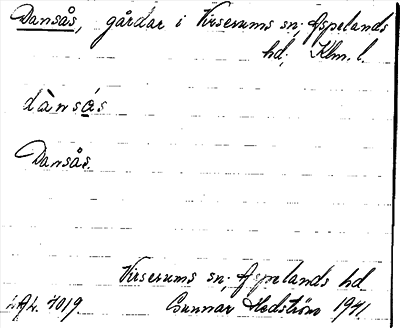 Dansås, gårdar i Virserums sn; Aspelands
hd; Klm. l.
dànsås
Dansås.
Virserums sn; Aspelands hd
4019. Gunnar Hedström 1941.